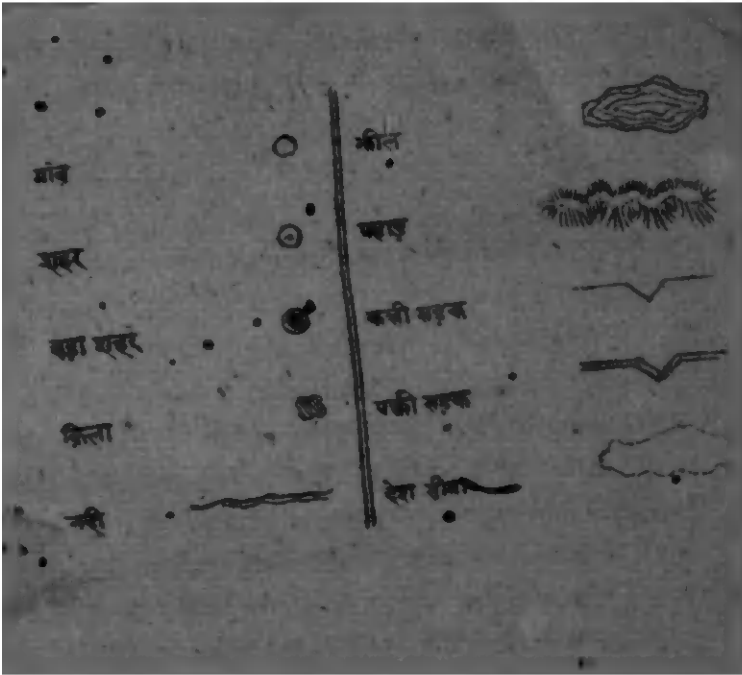 गांव
शहर
बड़ा शहर
क़िला
नदी
झील
पहाड़
कच्ची सड़क
पक्की सड़क
देश सीमा